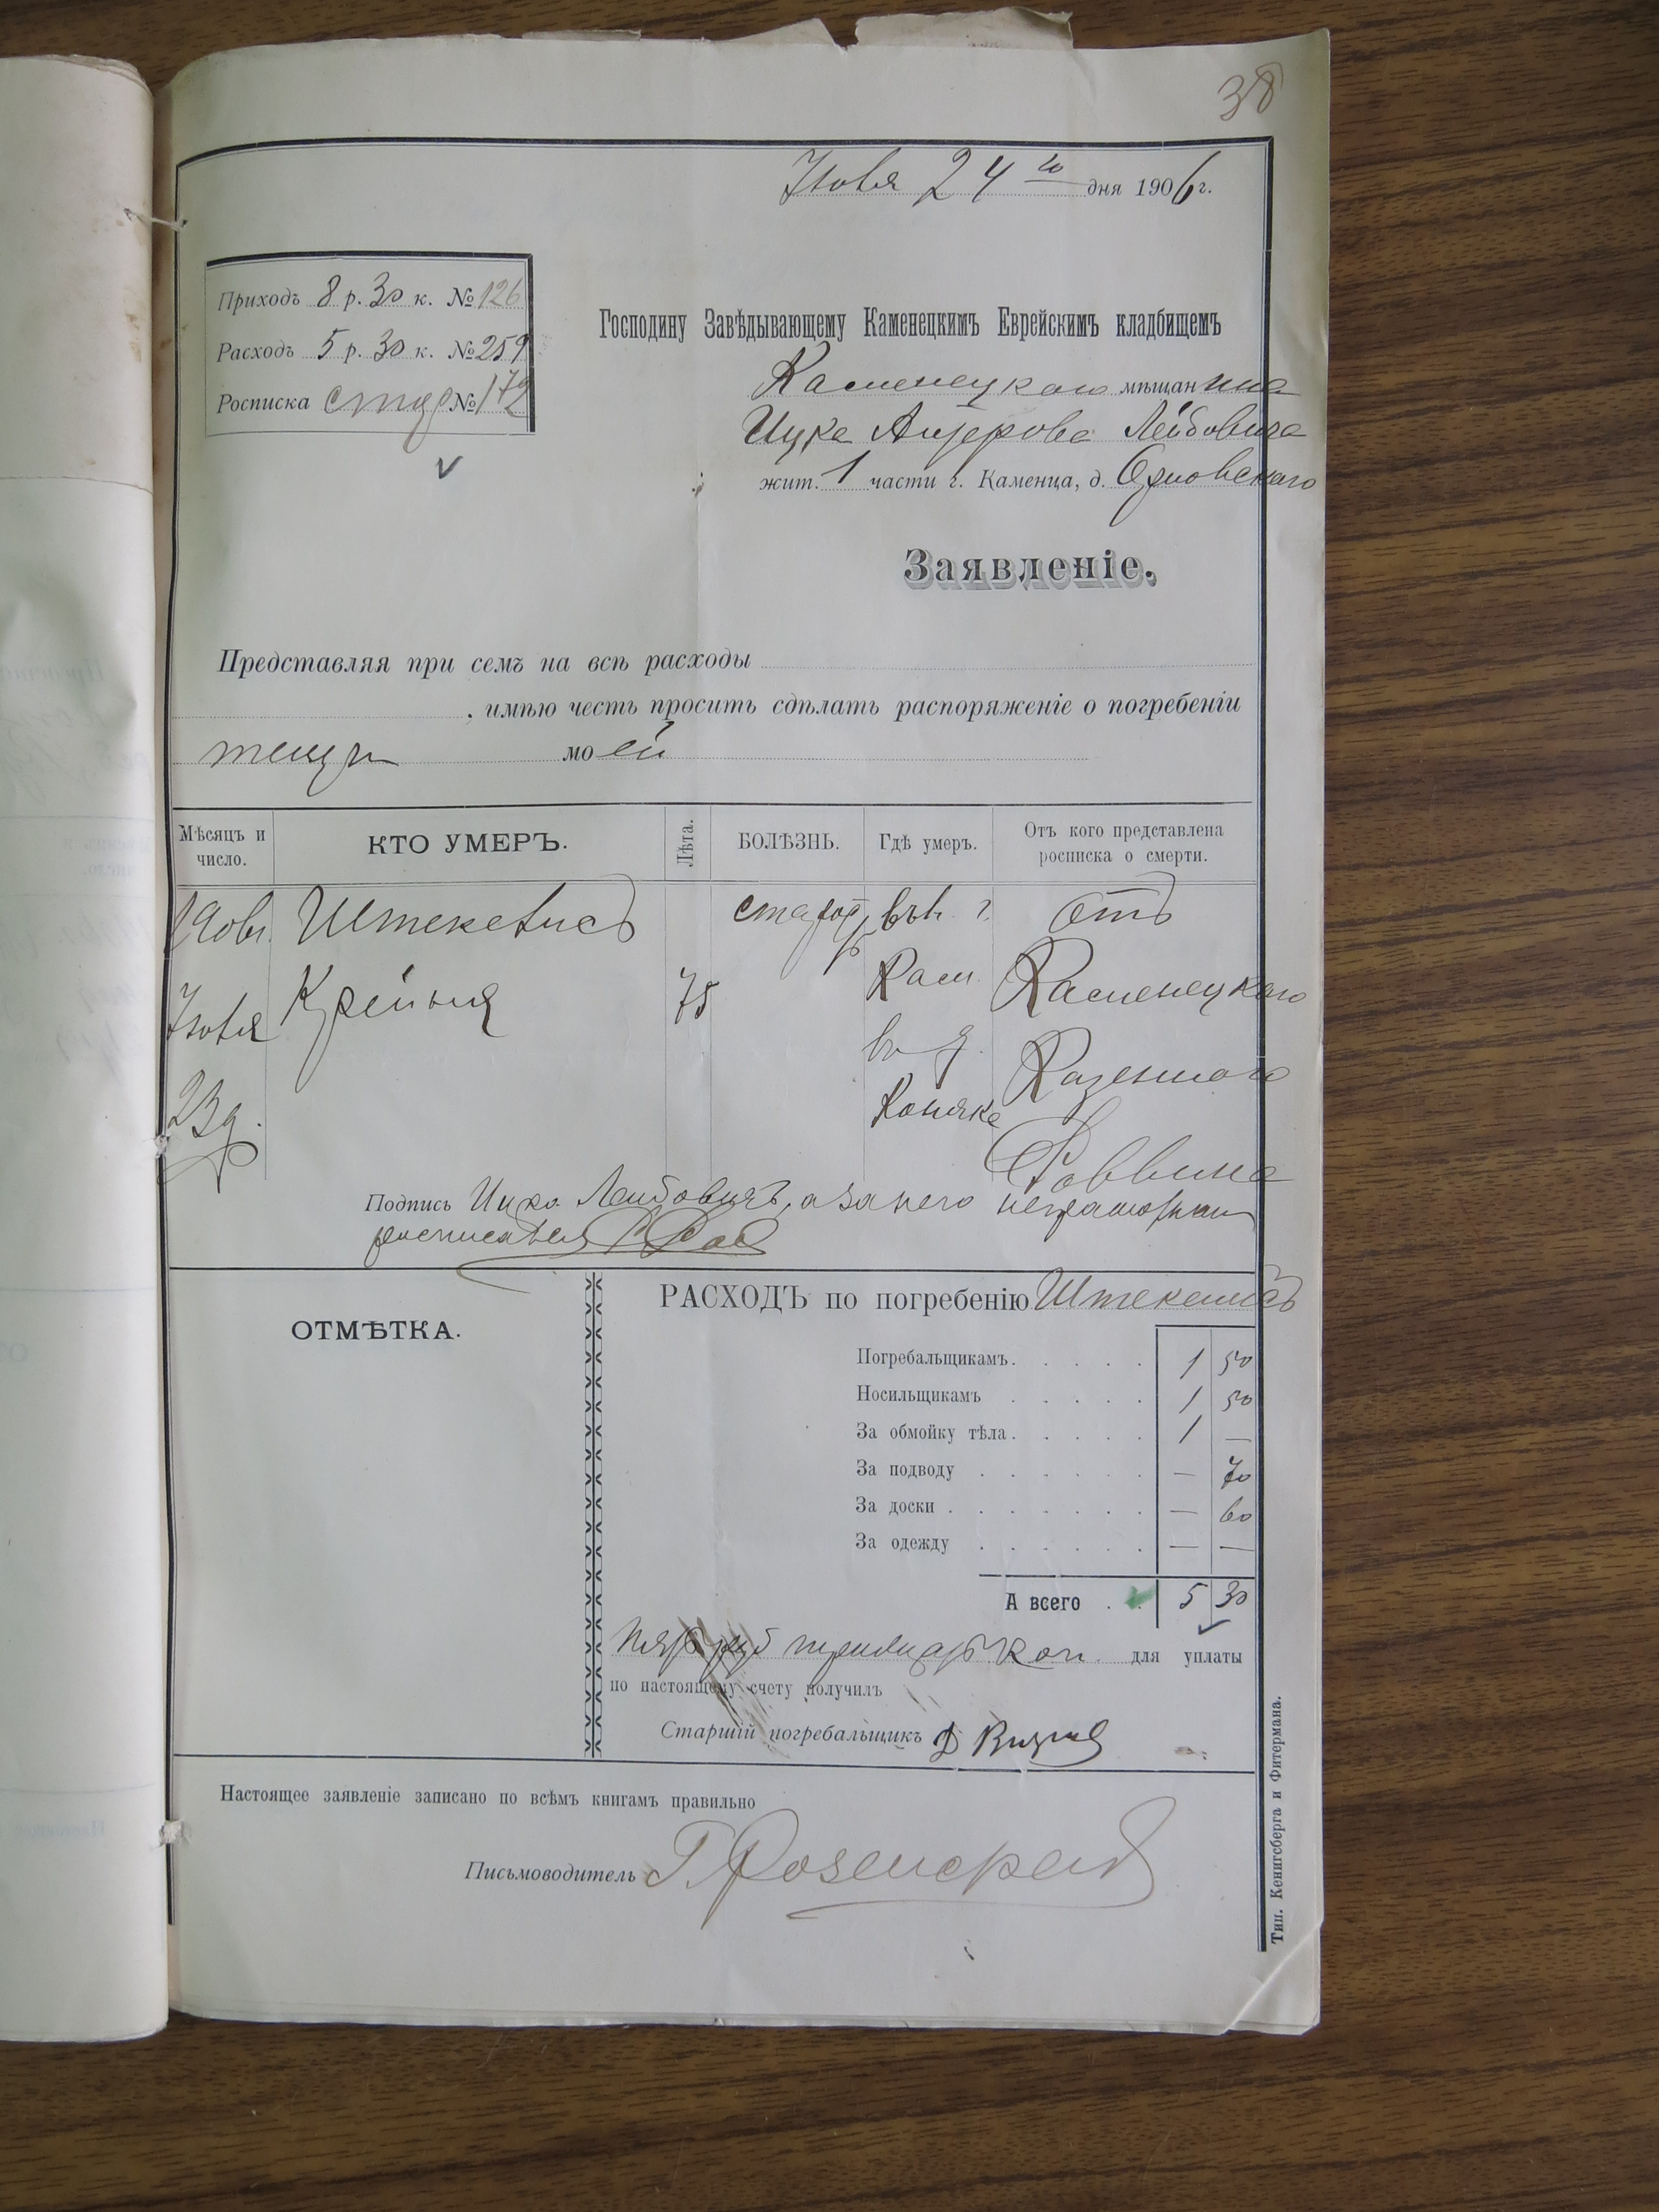 38
Іюля 24 го дня 1906 г.
Приходъ 8 р. 30 к. № 126
Расходъ 5 р. 30 к. № 259
Росписка № 172
Господину Завѣдывающему Каменецкимъ Еврейскимъ кладбищемъ
Каменецкаго мѣщанина
Ицка Лейбовича
жит. 1 части г. Каменца, д. Орловскаго
Заявленіе.
Представляя при семъ на всѣ расходы
, имѣю честь просить сдѣлать распоряженіе о погребеніи
тещи моей
Мѣсяцъ и число. КТО УМЕРЪ. Лѣта. БОЛѢЗНЬ. Гдѣ умеръ. Отъ кого представлена росписка о смерти.
отъ
Крейня 75 Кам. Каменецкаго
Іюля
въ д. Казеннаго
23 д.
Раввина
Подпись Ицко Лейбовичъ, а за него неграмотнаго
росписался
РАСХОДЪ по погребенію
ОТМѢТКА.
Погребальщикамъ. 1 50
Носильщикамъ 1 50
За обмойку тѣла. 1 —
За подводу — 70
За доски — 60
За одежду — —
А всего 5 30
Пять руб тридцать коп. для уплаты
по настоящему счету получилъ
Старшій погребальщикъ
Настоящее заявленіе записано по всѣмъ книгамъ правильно
Письмоводитель Г.
Тип. Кенигсберга и Фитермана.